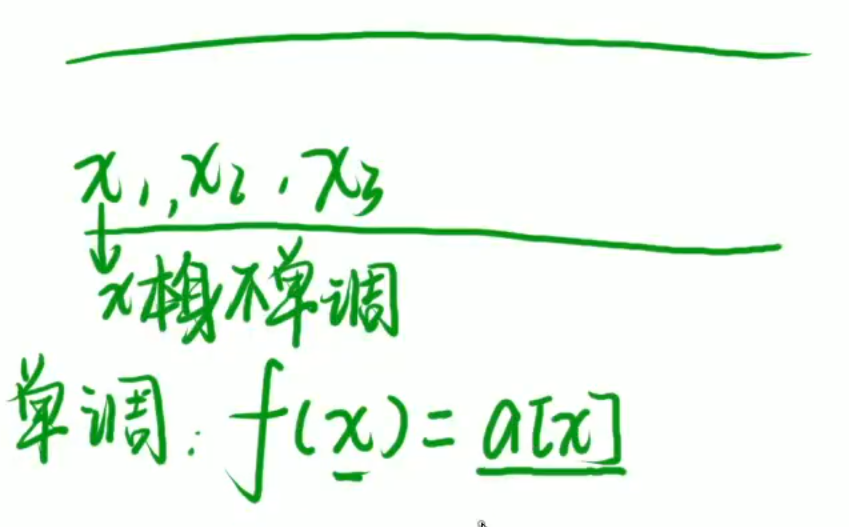 x₁, x₂, x₃
x本身不单调
单调: f(x) = a[x]